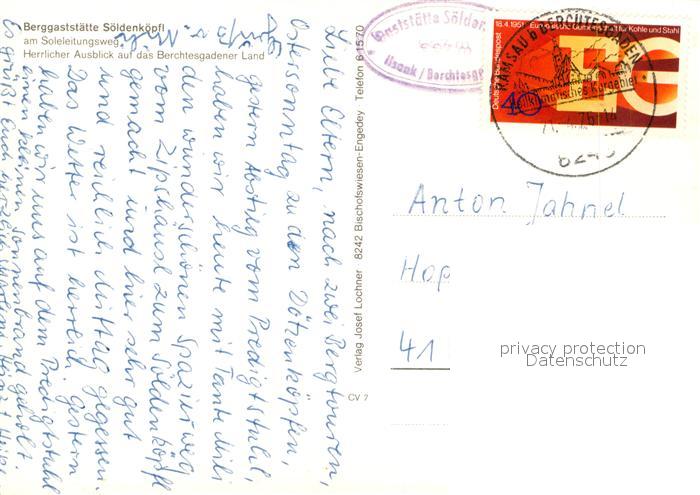 Berggaststätte Söldenköpfl
am Soleleitungsweg
Herrlicher Ausblick auf das Berchtesgadener Land
Liebe Eltern, nach zwei Bergtouren,
Ostersonntag zu den Dötzenköpfen,
gestern Abstieg vom Predigtstuhl,
haben wir heute mit Tante Mili
den wunderschönen Spazierweg
vom Zipfhäusl zum Söldenköpfl
gemacht und hier sehr gut
und reichlich Mittag gegessen.
Das Wetter ist herrlich, gestern
haben wir uns auf dem Predigtstuhl
einen kleinen Sonnenbrand geholt.
Es grüßt Euch
Verlag Josef Lochner · 8242 Bischofswiesen-Engedey · Telefon 61570
CV 7
Gaststätte Sölden
Ilsank / Berchtesg
18.4.1951 Europäische Gemeinschaft für Kohle und Stahl
Deutsche Bundespost
40
RAMSAU b BERCHTESGADEN
heilklimatisches Kurgebiet
8243
Anton Jahnel
Hap
41
privacy protection
Datenschutz